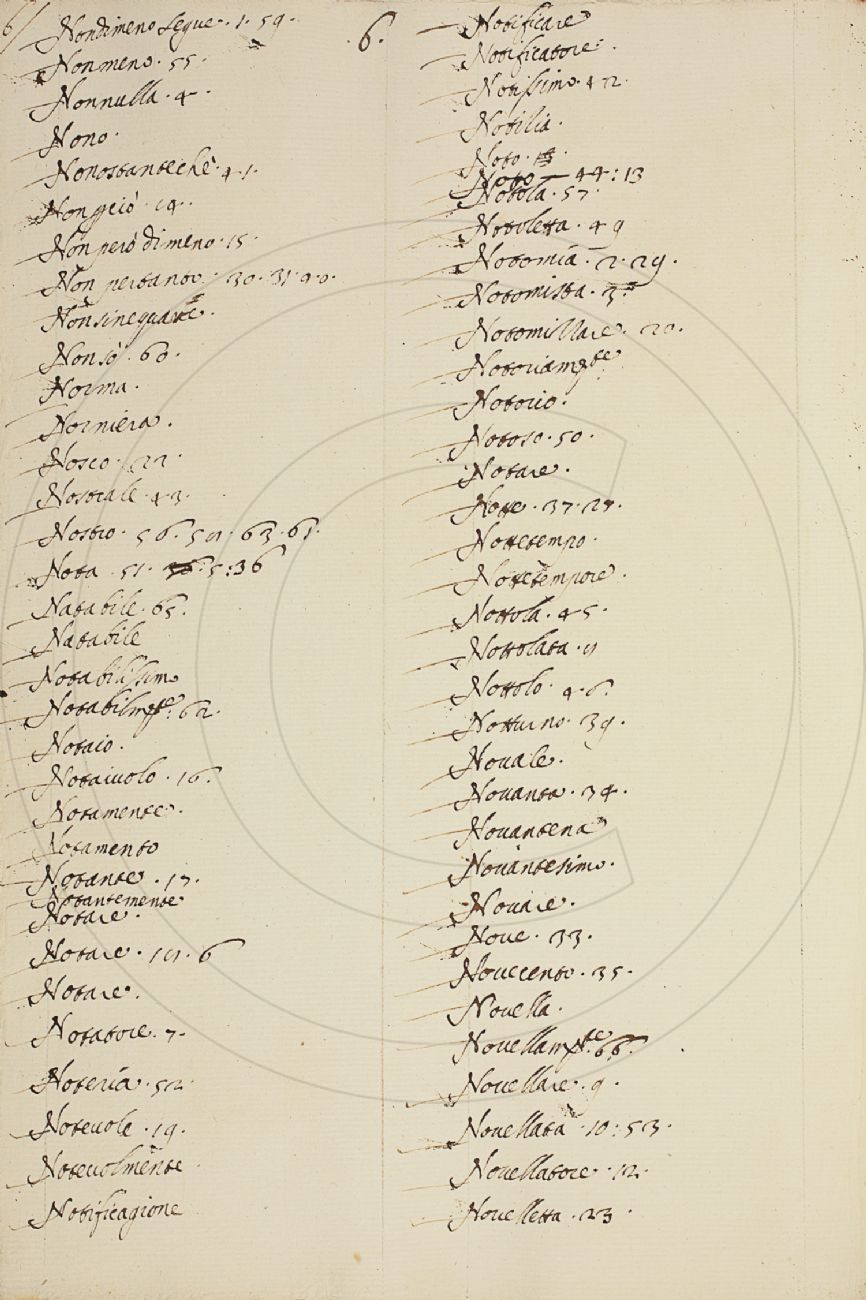 6.
Nondimeno segue. 1. 59.
Nonmeno. 55.
Nonnulla. 4.
Nono.
Nonostanteche. 41.
Non però. 14.
Non però dimeno. 15.
Non pertanto. 30. 31.
Nonsinequare.
Nonsò. 60.
Norma.
Norniera.
Nosco. 22.
Nostrale. 43.
Nostro. 56. 63. 61.
Nota. 51. 5:36
Natabile. 65.
Natabile
Notabilissimo
Notabilmte. 62.
Notaio.
Notaiuolo. 16.
Notamente.
Notamento
Notante. 17.
Notantemente
Notare.
Notare. 6
Notare.
Notatore. 7.
Noteria. 52.
Noteuole. 19.
Noteuolmente
Notificagione
Notificare
Notificatore.
Notissimo. 42.
Notilia.
Noto.
Noto 44:13
Notola. 57.
Notoletta. 49
Notomia. 2. 29.
Notomista.
Notomillare. 20.
Notoriamte.
Notorio.
Notoso. 50.
Notare.
Notte. 37. 27.
Nottetempo.
Nottetempore.
Nottola. 45.
Nottolata. 11
Nottolo. 46.
Notturno. 39.
Nouale.
Nouanta. 34.
Nouantena
Nouantesimo.
Nouare.
Noue. 33.
Nouecento. 35.
Nouella.
Nouellamte. 66.
Nouellare. 9.
Nouellata. 10:53.
Nouellatore. 12.
Nouelletta. 23.